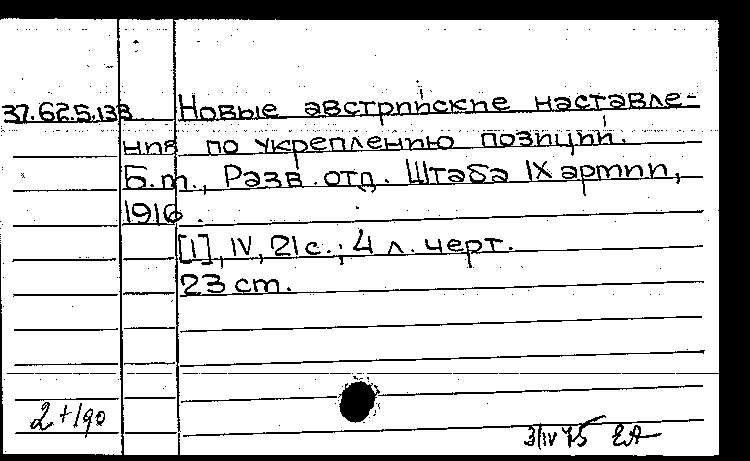 37.62.5.133 Новые австрийские наставле-
ния по укреплению позиций.
Б.м., Разв. отд. Штаба IX армии,
1916.
[1], IV, 21 с.; 4 л. черт.
23 cm.
2+190
3/IV 75 ЕА